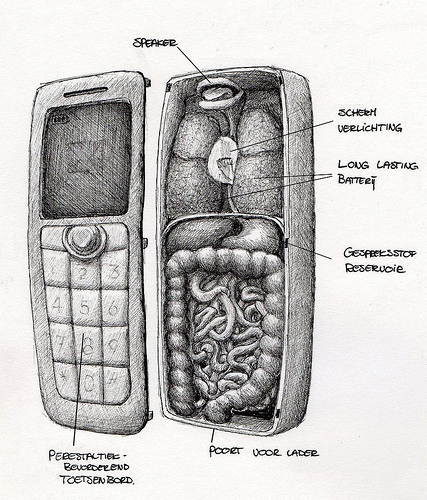 SPEAKER
SCHERM
VERLICHTING
LONG LASTING
BATTERIJ
GESPREKSSTOF
RESERVOIR
1 2 3
4 5 6
7 8 9
* 0 #
PERESTALTIEK-
BEVORDEREND
TOETSENBORD.
POORT VOOR LADER